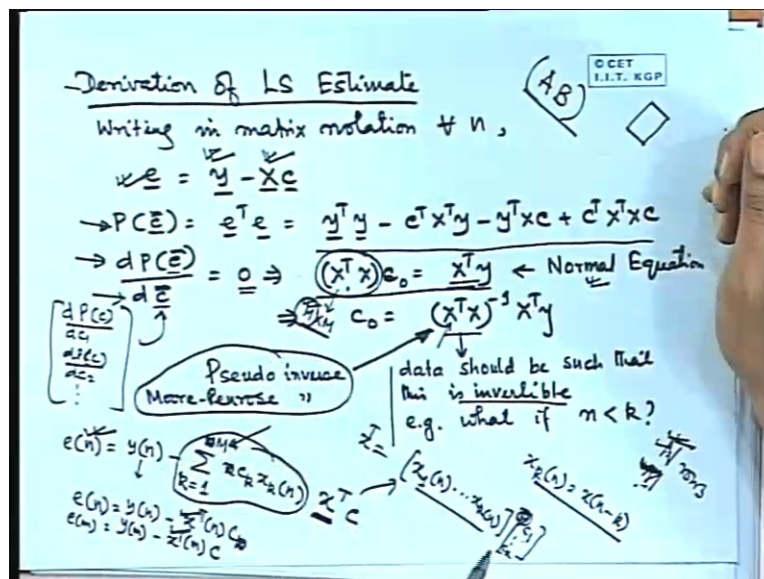 Derivation of LS Estimate
(AB)
© CET
I.I.T. KGP
Writing in matrix notation ∀ n,
e = y - Xc
→ P(c) = eᵀe = yᵀy - cᵀXᵀy - yᵀXc + cᵀXᵀXc
→ dP(c)/dc = 0 ⇒ (XᵀX) c₀ = Xᵀy ← Normal Equation
⇒ c₀ = (XᵀX)⁻¹ Xᵀy
[dP(c)/dc₁
dP(c)/dc₂
⋮]
Pseudo inverse
Moore-Penrose "
data should be such that
this is invertible
e.g. what if n < k?
e(n) = y(n) - Σ k=1 cₖ xₖ(n)
xᵀ =
xᵀc → [x₁(n) ... xₖ(n)] [c₁ ⋮
xₖ(n) = x(n-k)
e(n) = y(n) - xᵀ(n) c
e(n) = y(n) - xᵀ(n) c